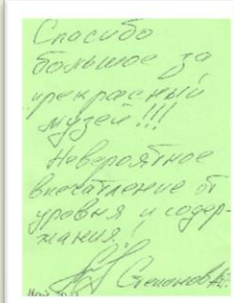 Спасибо
большое за
прекрасный
музей!!!
Невероятное
впечатление от
уровня и содер-
жания!
Степанов